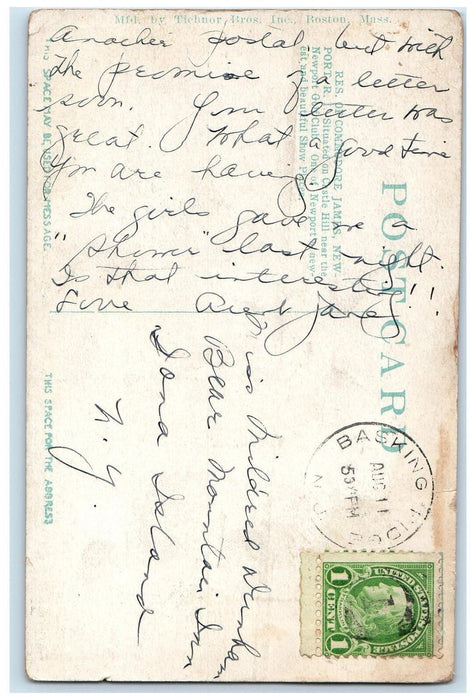 Mfd. by Tichnor Bros. Inc., Boston, Mass.
Another postal but with
the promise of a letter
soon. Your letter was
great. What a good time
you are having.
The girls gave me a
"shower" last night.
Is that interesting!!
Love Aunt Jane.
THIS SPACE MAY BE USED FOR MESSAGE.
RES. OF COMMODORE JAMES, NEW-
PORT, R. I. Situated on Castle Hill near the
Newport Golf Club. One of Newport's new-
est and beautiful Show Places.
POST CARD
THIS SPACE FOR THE ADDRESS
BASKING RIDGE
AUG 11
5 PM
N.J.
UNITED STATES POSTAGE
1 CENT 1
Miss Mildred
Bear Mountain Inn
Iona Island
N.Y.